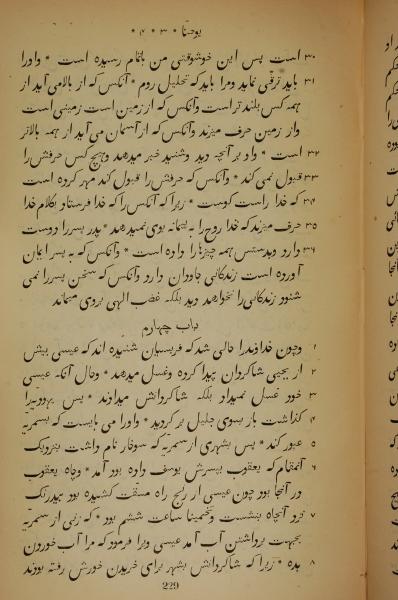 یوحنا * ۳ * ۴ *
۳۰ است پس این خوشوقتی من باتمام رسیده است * و او را
۳۱ باید ترقّی نماید و مرا باید که تحلیل روم * آنکس که از بالا می آید از
همه کس بلند تر است و آنکس که از زمین است زمینی است
و از زمین حرف میزند و آنکس که از آسمان می آید از همه بالاتر
۳۲ است * و او بر آنچه دید و شنید خبر میدهد و هیچ کس حرفش را
۳۳ قبول نمی کند * و آنکس که حرفش را قبول کند مهر کرده است
۳۴ که خدا راست کوست * زیرا که آنکس را که خدا فرستاد بکلام خدا
۳۵ حرف میزند که خدا روح را به پیمانه بوی نمیدهد * پدر پسر را دوست
۳۶ دارد و بدستش همه چیزها را داده است * و آنکس که به پسر ایمان
آورده است زندکانی جاودان دارد و آنکس که سخن پسر را نمی
شنود زندکانی را نخواهد دید بلکه غضب الهی بروی میماند
باب چهارم
۱ و چون خداوند را حالی شد که فریسیان شنیده اند که عیسی بیش
۲ از یحیی شاکردان پیدا کرده و غسل میدهد * و حال آنکه عیسی
۳ خود غسل نمیداد بلکه شاکردانش میدادند * پس یهودیه را
۴ کذاشت باز بسوی جلیل برکردید * و او را می بایست که بسمریه
۵ عبور کند * پس بشهری از سمریه که سوخار نام داشت بنزدیک
۶ آنمقام که یعقوب بپسرش یوسف داده بود آمد * و چاه یعقوب
در آنجا بود چون عیسی از رنج راه مشقت کشیده بود بیدرنک
۷ نزد آنچاه بنشست و تخمینا ساعت ششم بود * که زنی از سمریه
بجهت برداشتن آب آمد عیسی ویرا فرمود که مرا آب خوردن
۸ بده * زیرا که شاکردانش بشهر برای خریدن خورش رفته بودند
229